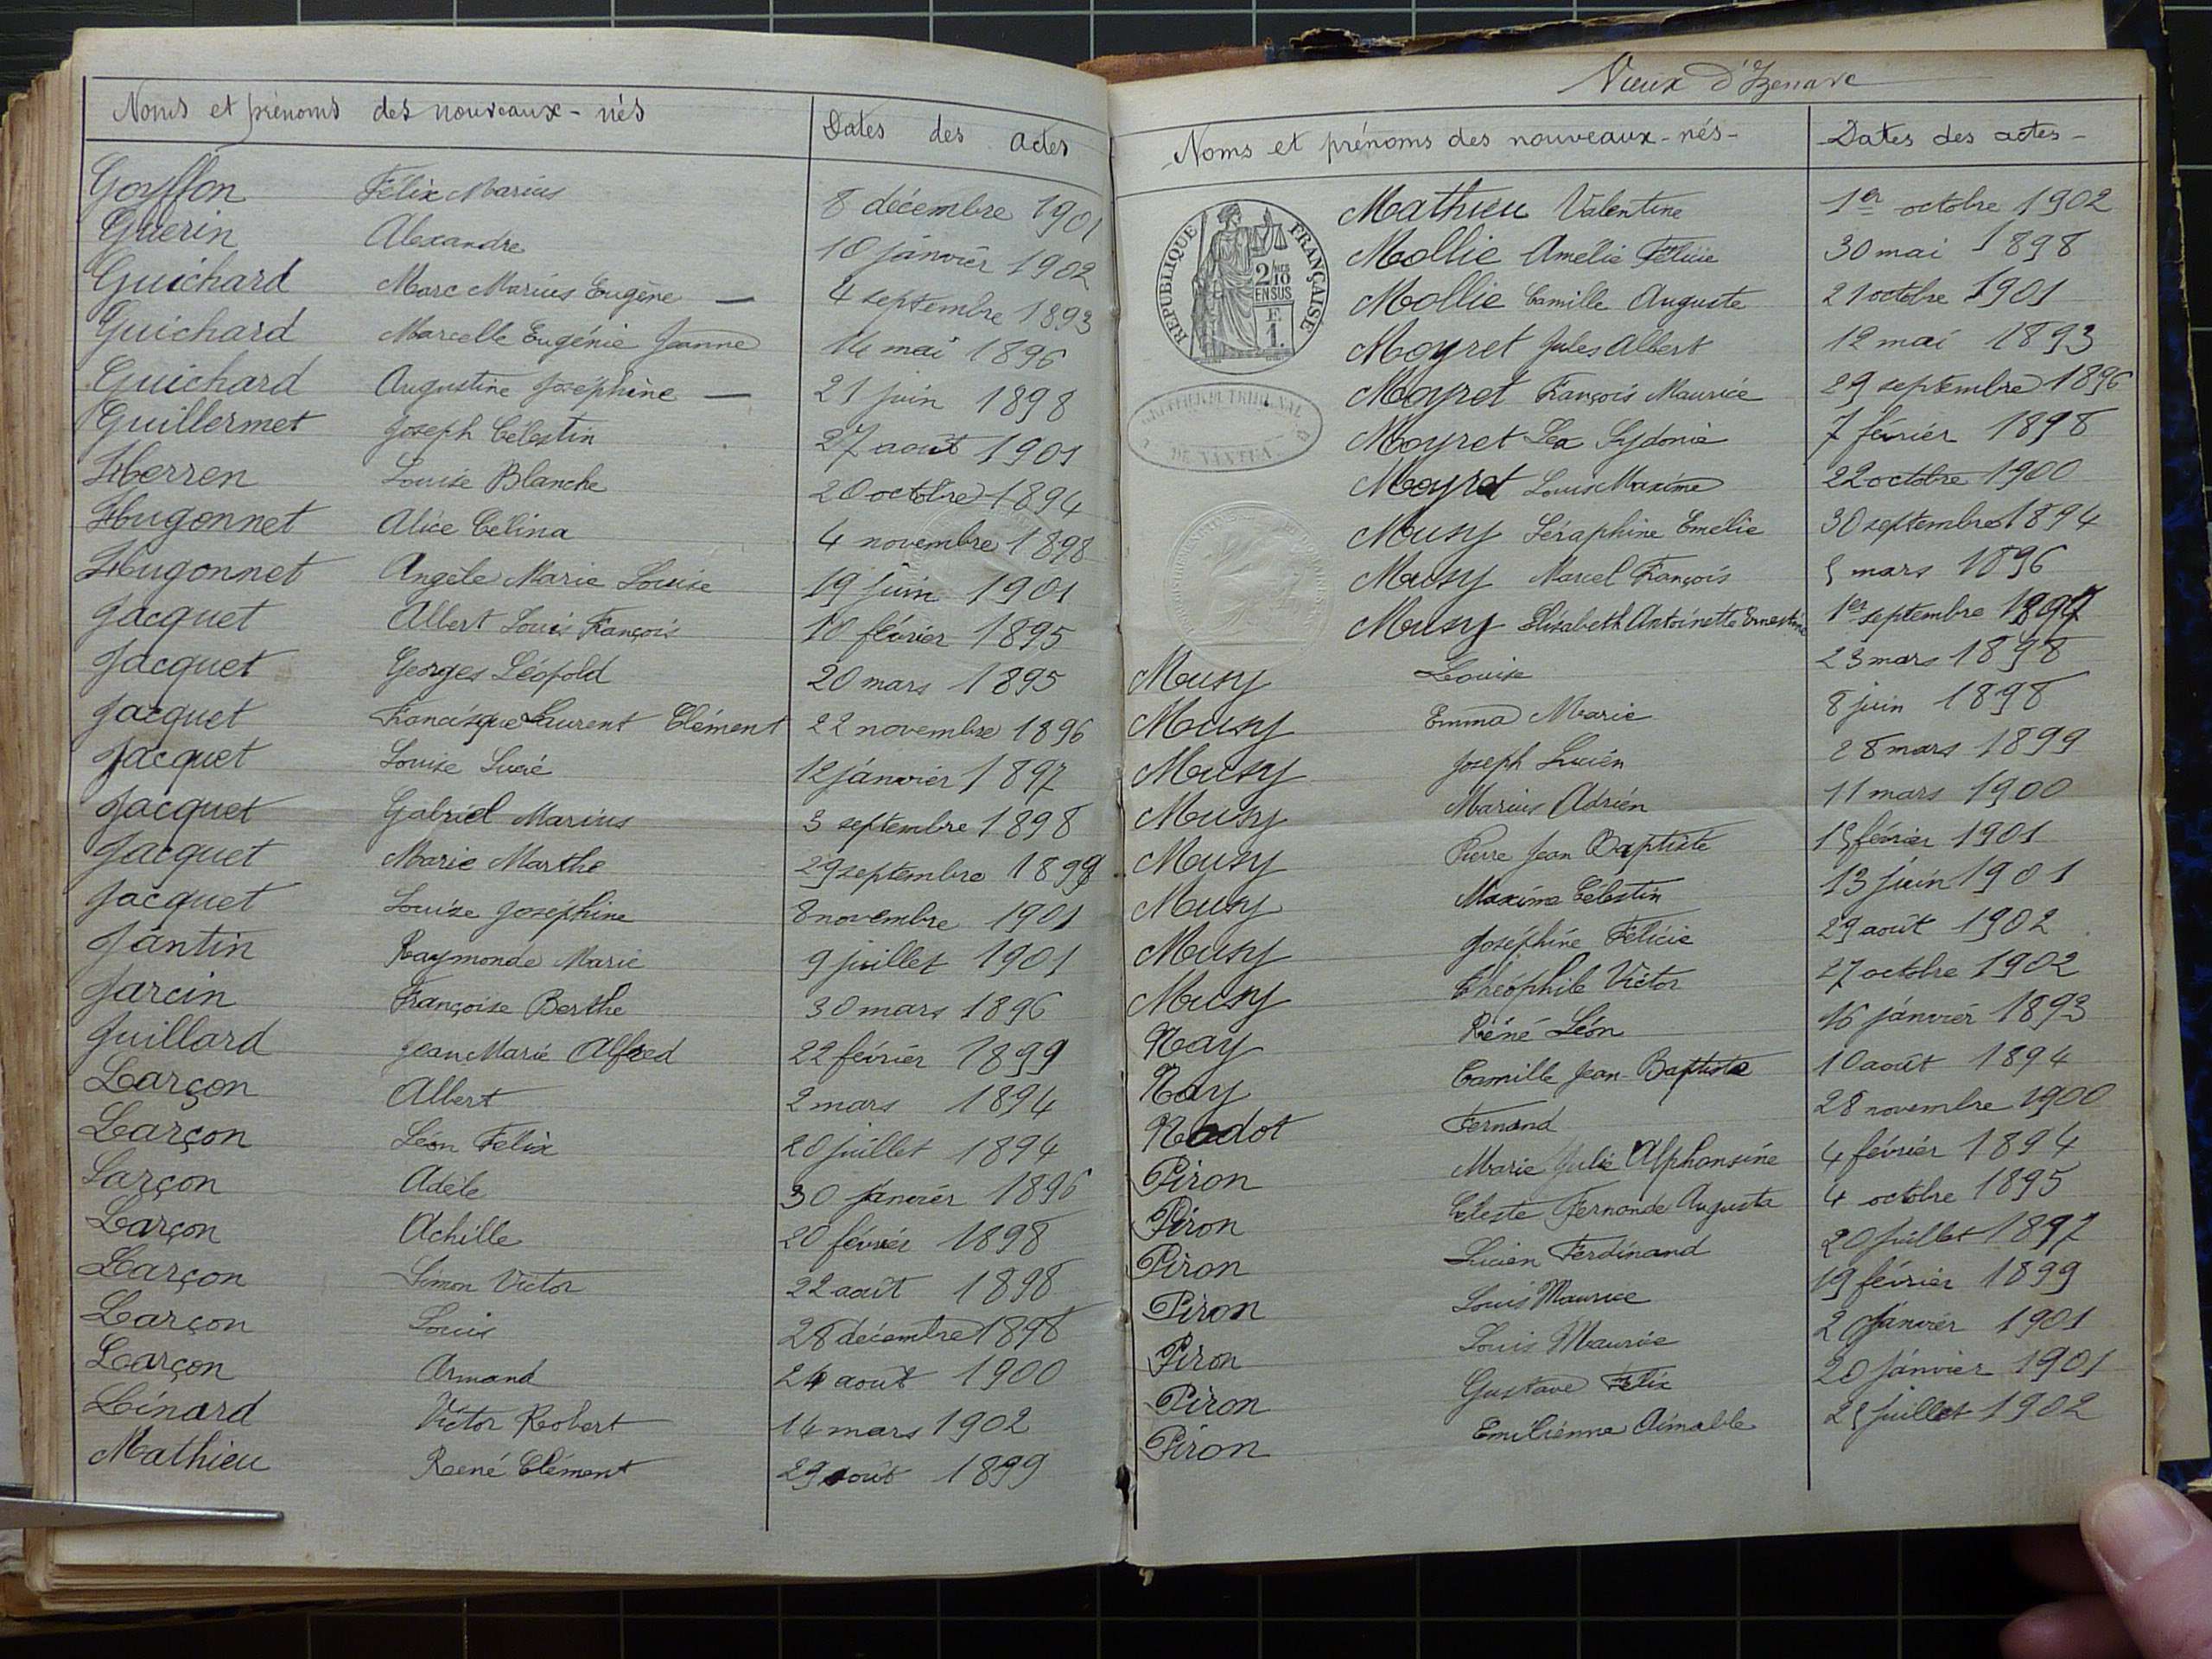 Noms et prénoms des nouveaux-nés Dates des Actes
Goyffon Félix Marius 8 décembre 1901
Guerin Alexandre 10 janvier 1902
Guichard Marc Marius Eugène — 4 septembre 1893
Guichard Marcelle Eugénie Jeanne 14 mai 1896
Guichard Augustine Joséphine — 21 juin 1898
Guillermet Joseph Célestin 27 août 1901
Herren Louise Blanche 20 octobre 1894
Hugonnet Alice Célina 4 novembre 1898
Hugonnet Angèle Marie Louise 19 juin 1901
Jacquet Albert Louis François 10 février 1895
Jacquet Georges Léopold 20 mars 1895
Jacquet Francisque Laurent Clément 22 novembre 1896
Jacquet Louise Lucie 12 janvier 1897
Jacquet Gabriel Marius 3 septembre 1898
Jacquet Marie Marthe 29 septembre 1899
Jacquet Louise Joséphine 8 novembre 1901
Jantin Raymonde Marie 9 juillet 1901
Jarcin Françoise Berthe 30 mars 1896
Juillard Jean Marie Alfred 22 février 1899
Larçon Albert 2 mars 1894
Larçon Léon Félix 20 juillet 1894
Larçon Adèle 30 janvier 1896
Larçon Achille 20 février 1898
Larçon Simon Victor 22 août 1898
Larçon Louis 28 décembre 1898
Larçon Armand 24 août 1900
Lénard Victor Robert 14 mars 1902
Mathieu René Clément 29 août 1899
Vieux d'Izenave
Noms et prénoms des nouveaux-nés- Dates des actes-
REPUBLIQUE FRANÇAISE
2/10
EN SUS
F.
1.
DE NANTUA
Mathieu Valentine 1er octobre 1902
Mollie Amélie Félicie 30 mai 1898
Mollie Camille Auguste 21 octobre 1901
Moyret Jules Albert 12 mai 1893
Moyret François Maurice 29 septembre 1896
Moyret Léa Sydonie 7 février 1898
Moyret Louis Maxime 22 octobre 1900
Musy Séraphine Emélie 30 septembre 1894
Musy Marcel François 5 mars 1896
Musy Elisabeth Antoinette Ernestine 1er septembre 1897
Musy Louise 23 mars 1898
Musy Emma Marie 8 juin 1898
Musy Joseph Lucien 28 mars 1899
Musy Marius Adrien 11 mars 1900
Musy Pierre Jean Baptiste 15 février 1901
Musy Maxime Célestin 13 juin 1901
Musy Joséphine Félicie 29 août 1902
Musy Théophile Victor 27 octobre 1902
Nay Réné Léon 16 janvier 1893
Nay Camille Jean-Baptiste 10 août 1894
Nodot Fernand 28 novembre 1900
Piron Marie Julie Alphonsine 4 février 1894
Piron Céleste Fernande Augusta 4 octobre 1895
Piron Lucien Ferdinand 20 juillet 1897
Piron Louis Maurice 19 février 1899
Piron Louis Maurice 20 janvier 1901
Piron Gustave Félix 20 janvier 1901
Piron Emilienne Aimable 25 juillet 1902